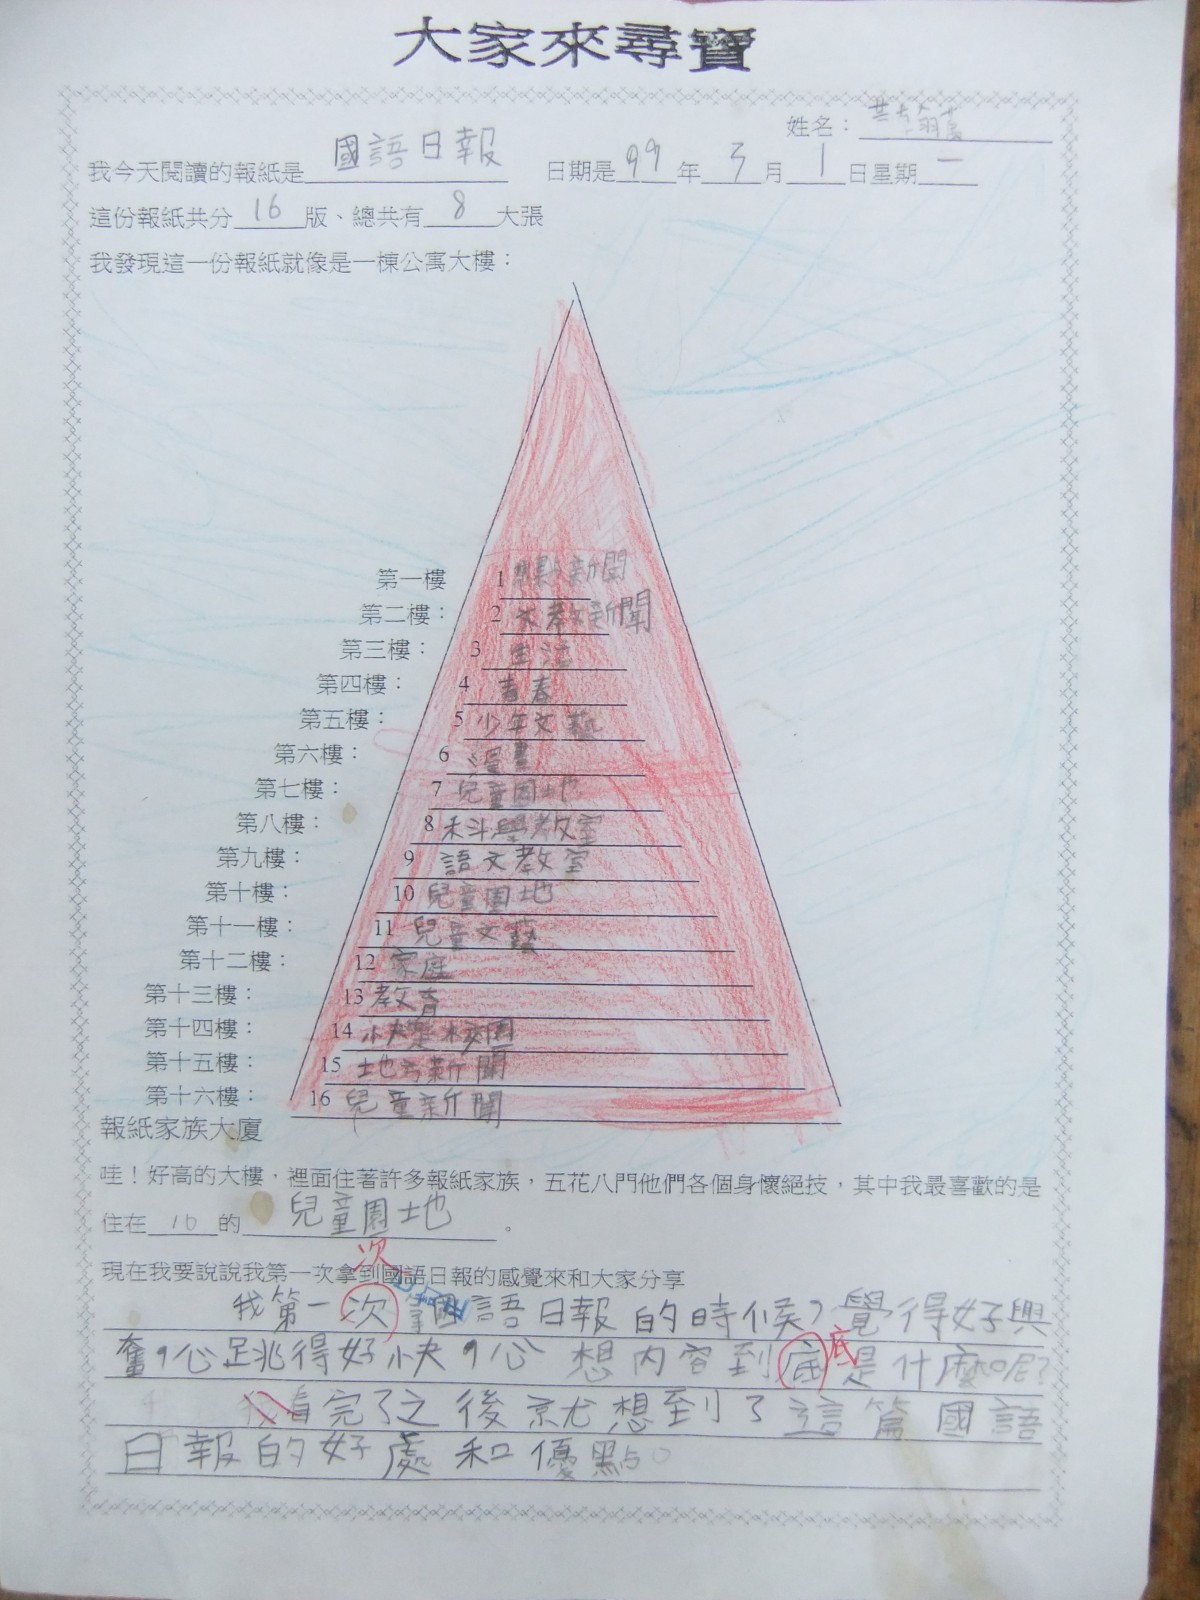 大家來尋寶
姓名：
我今天閱讀的報紙是國語日報 日期是99年3月1日星期一
這份報紙共分16版、總共有8大張
我發現這一份報紙就像是一棟公寓大樓：
第一樓 1 焦點新聞
第二樓： 2 文教新聞
第三樓： 3 生活
第四樓： 4 青春
第五樓： 5 少年文藝
第六樓： 6 漫畫
第七樓： 7 兒童園地
第八樓： 8 科學教室
第九樓： 9 語文教室
第十樓： 10 兒童園地
第十一樓： 11 兒童文藝
第十二樓： 12 家庭
第十三樓： 13 教育
第十四樓： 14 快樂校園
第十五樓： 15 地方新聞
第十六樓： 16 兒童新聞
報紙家族大廈
哇！好高的大樓，裡面住著許多報紙家族，五花八門他們各個身懷絕技，其中我最喜歡的是
住在10的兒童園地。
現在我要說說我第一次拿到國語日報的感覺來和大家分享
次
我第一次拿國語日報的時候，覺得好興
奮，心跳得好快，心想內容到底是什麼呢?
底
看完了之後就想到了這篇國語
日報的好處和優點。